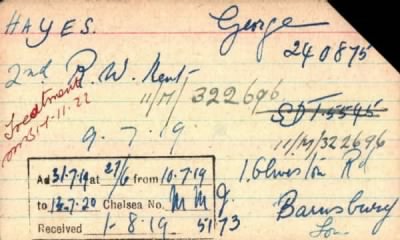 HAYES. George
240875
2nd R. W. Kent
11/M/322696
SDT5545
Treatment
from 31-1-11-22
9.7.19
11/M/322696
Ad 31.7.19 at 27/6 from 10.7.19
to 13.7.20 Chelsea No. M M J.
Received 1-8.19 5173
Rd
Barnsbury